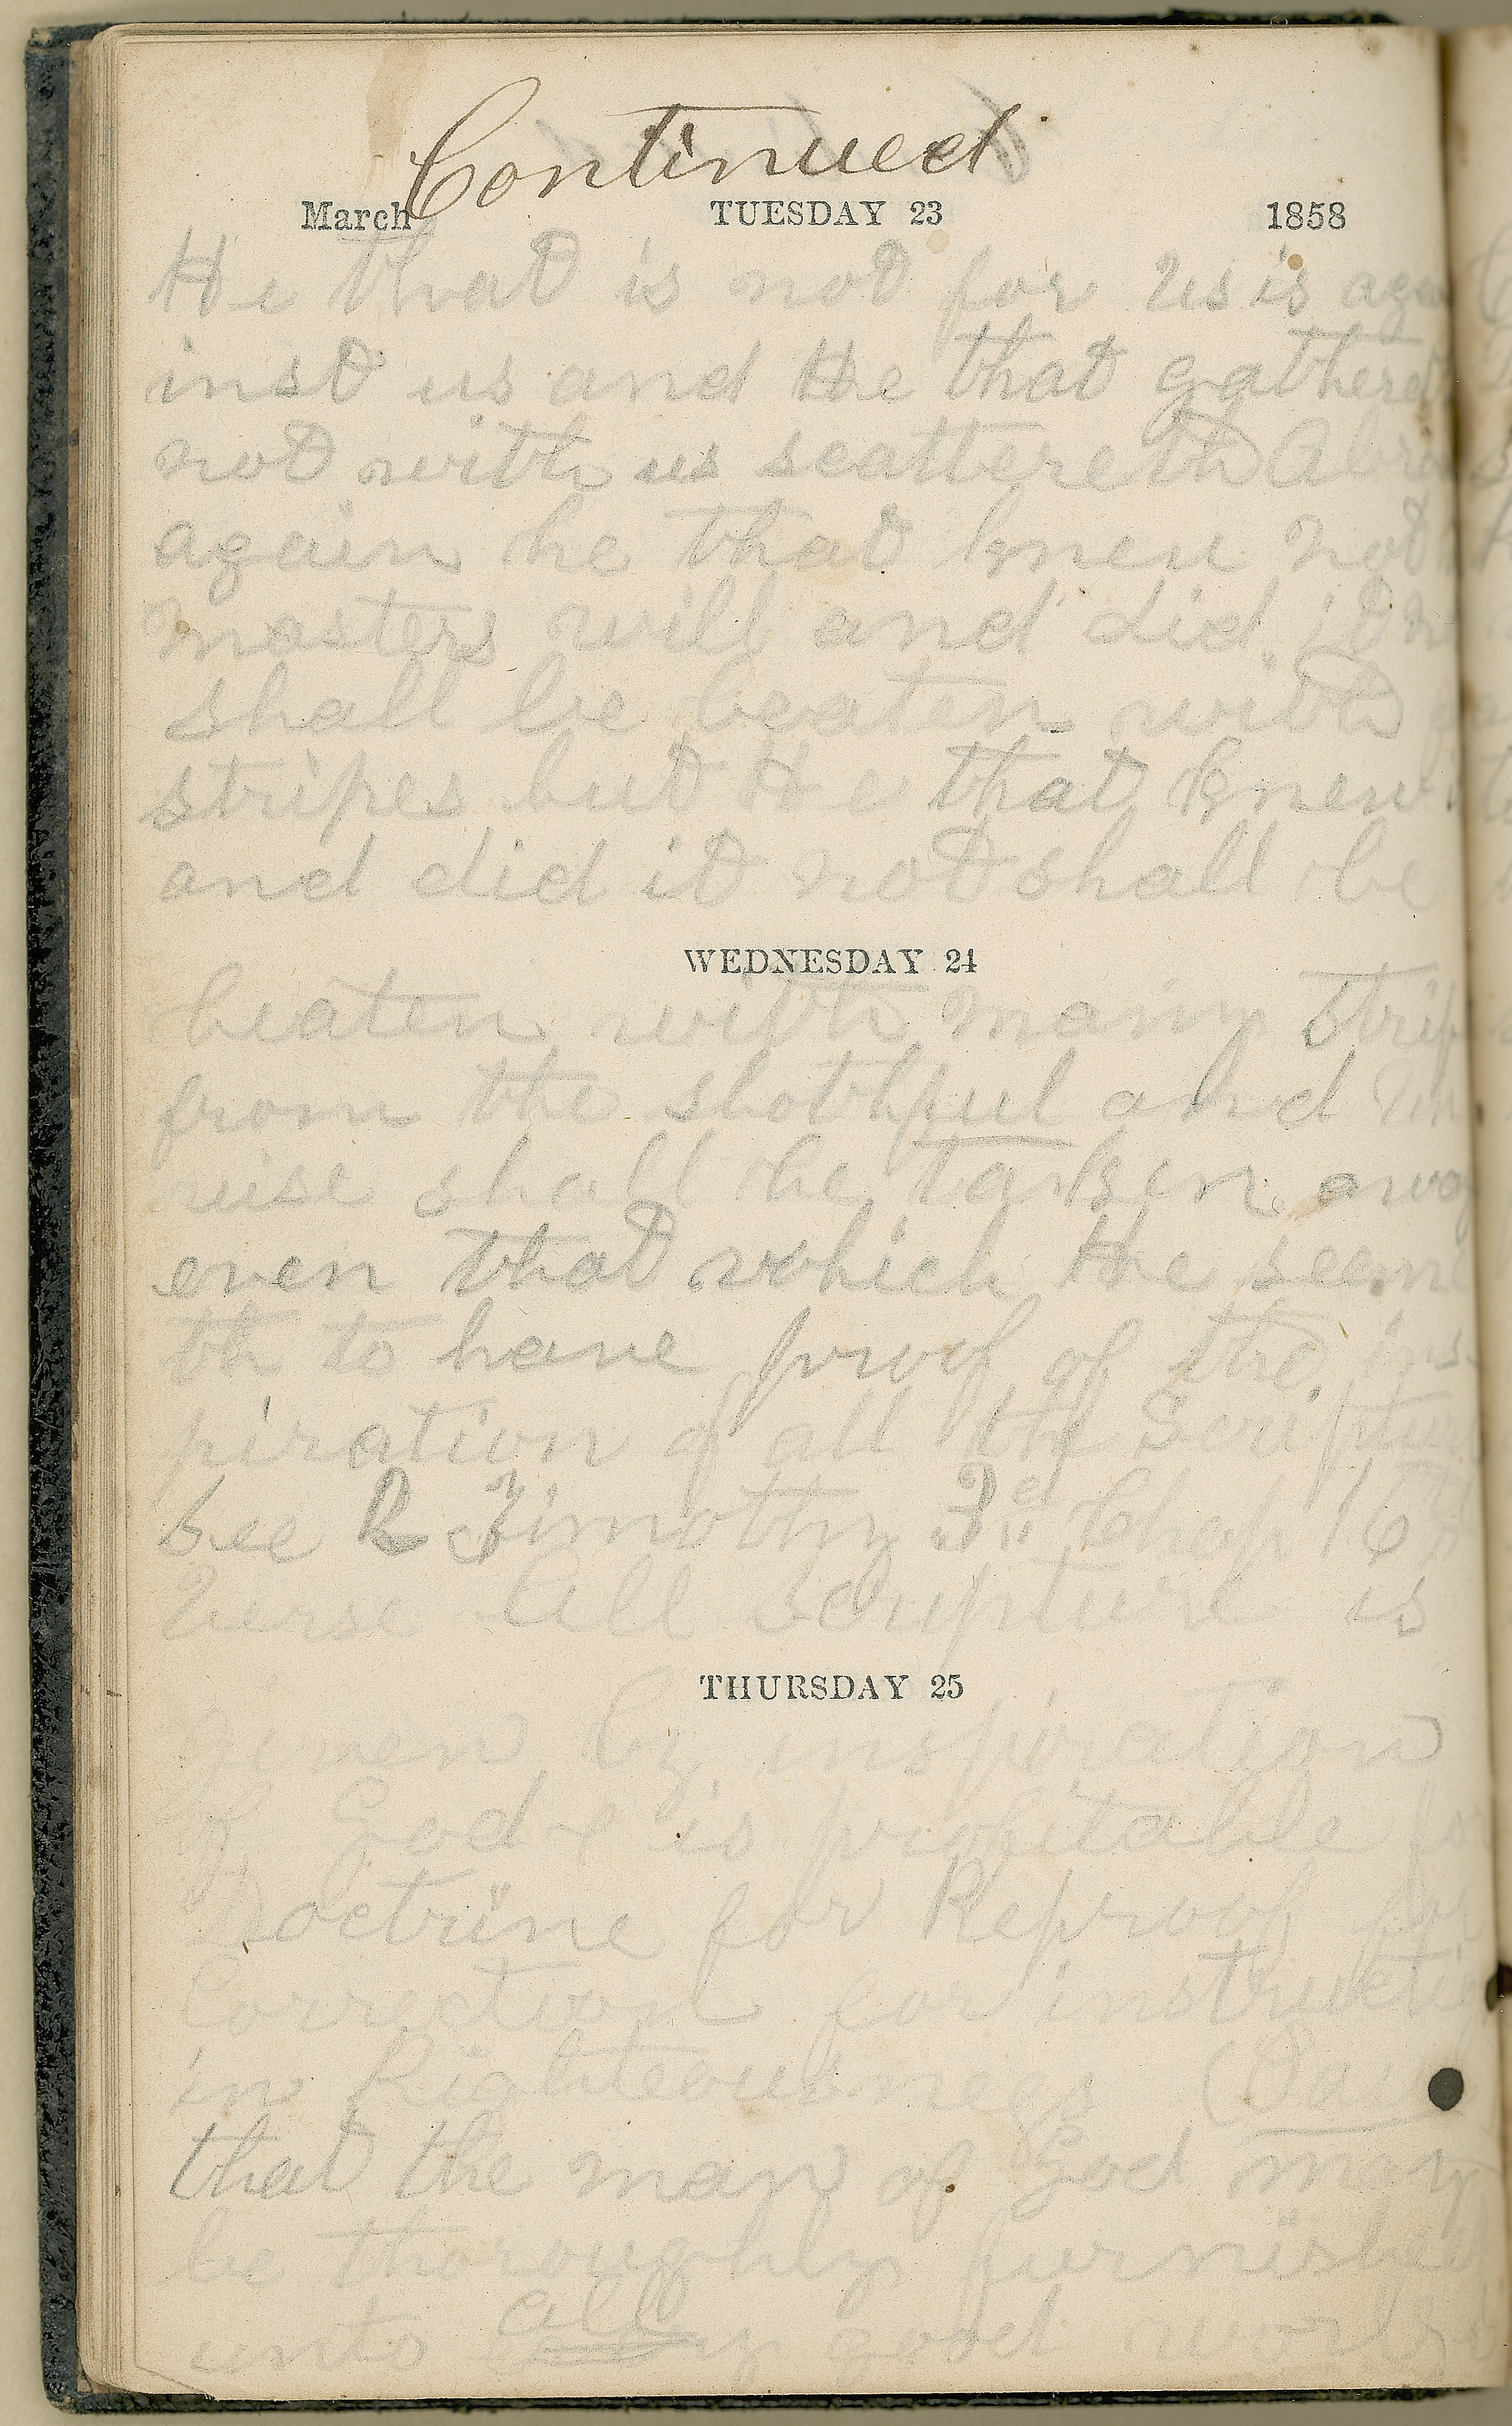 Continued
March TUESDAY 23 1858
He that is not for us is aga
inst us and He that gathered
not with us scattereth Abro
again he that knew not
masters will and did it n
shall be beaten with
stripes but He that knew
and did it not shall be
WEDNESDAY 24
beaten with many strip
from the slothful and Un
wise shall be taken away
even that which He seeme
th to have proof of the ins-
piration of all the Scriptu
See 2 Timothy 3d Chap 16
Verse All Scripture is
THURSDAY 25
given by inspiration
of God & is profitable for
Doctrine for Reproof for
Correction for instructi
in Righteousness (Paul
that the man of God may
be thoroughly furnished
unto all good work